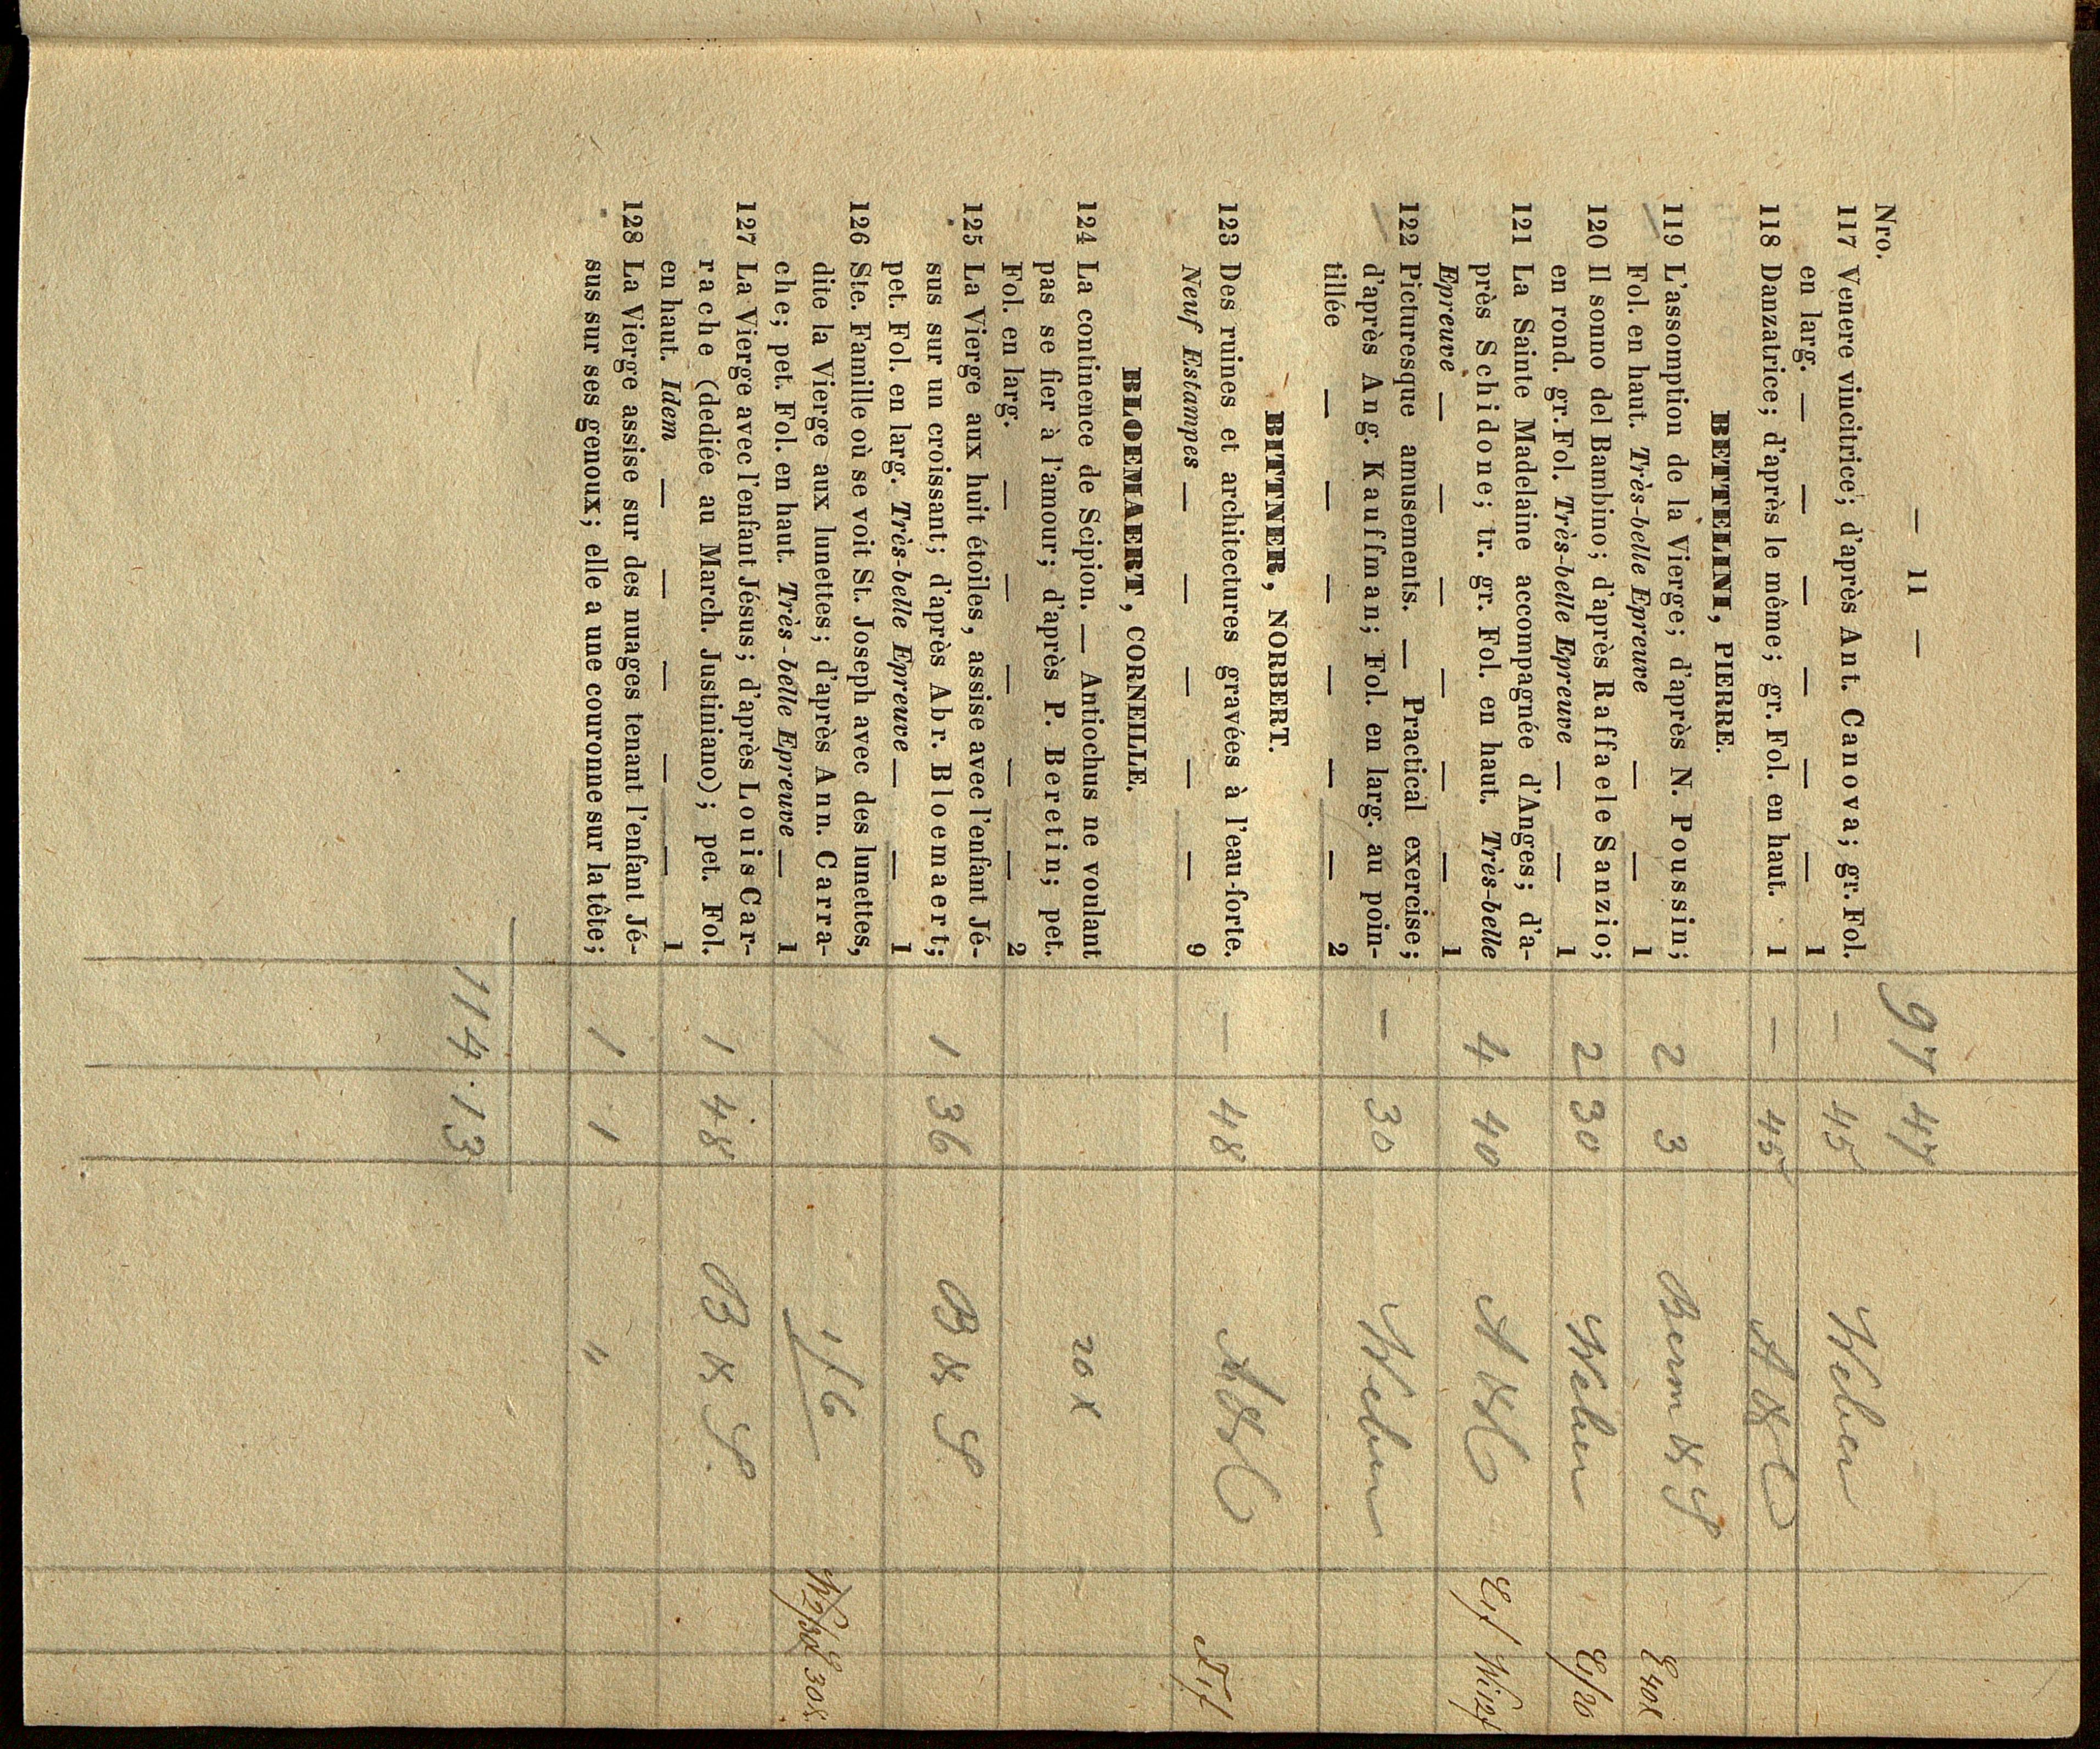 — 11 —
Nro. 97 47
117 Venere vincitrice; d'après Ant. Canova; gr. Fol.
en larg. — — — — — 1 — 45 Weber
118 Danzatrice; d'après le même; gr. Fol. en haut. 1 — 45 A & C
BETTELINI, PIERRE.
119 L'assomption de la Vierge; d'après N. Poussin;
Fol. en haut. Très-belle Epreuve — — 1 2 3 Berm & S E 40x
120 Il sonno del Bambino; d'après Raffaele Sanzio;
en rond. gr. Fol. Très-belle Epreuve — — 1 2 30 Weber E 1/20
121 La Sainte Madelaine accompagnée d'Anges; d'a-
près Schidone; tr. gr. Fol. en haut. Très-belle
Epreuve — — — — — — 1 4 40 A & C E 1f
122 Picturesque amusements. — Practical exercise;
d'après Ang. Kauffman; Fol. en larg. au poin-
tillée — — — — — — 2 — 30 Weber
BITTNER, NORBERT.
123 Des ruines et architectures gravées à l'eau-forte.
Neuf Estampes — — — — — 9 — 48 A & C
BLOEMAERT, CORNEILLE.
124 La continence de Scipion. — Antiochus ne voulant
pas se fier à l'amour; d'après P. Beretin; pet.
Fol. en larg. — — — — — 2 20 x
125 La Vierge aux huit étoiles, assise avec l'enfant Jé-
sus sur un croissant; d'après Abr. Bloemaert;
pet. Fol. en larg. Très-belle Epreuve — — 1 1 36 B & S.
126 Ste. Famille où se voit St. Joseph avec des lunettes,
dite la Vierge aux lunettes; d'après Ann. Carra-
che; pet. Fol. en haut. Très-belle Epreuve — 1 1f6 30x
127 La Vierge avec l'enfant Jésus; d'après Louis Car-
rache (dediée au March. Justiniano); pet. Fol.
en haut. Idem — — — — — 1 1 48 B & S.
128 La Vierge assise sur des nuages tenant l'enfant Jé-
sus sur ses genoux; elle a une couronne sur la tête; 1 1 "
114.13